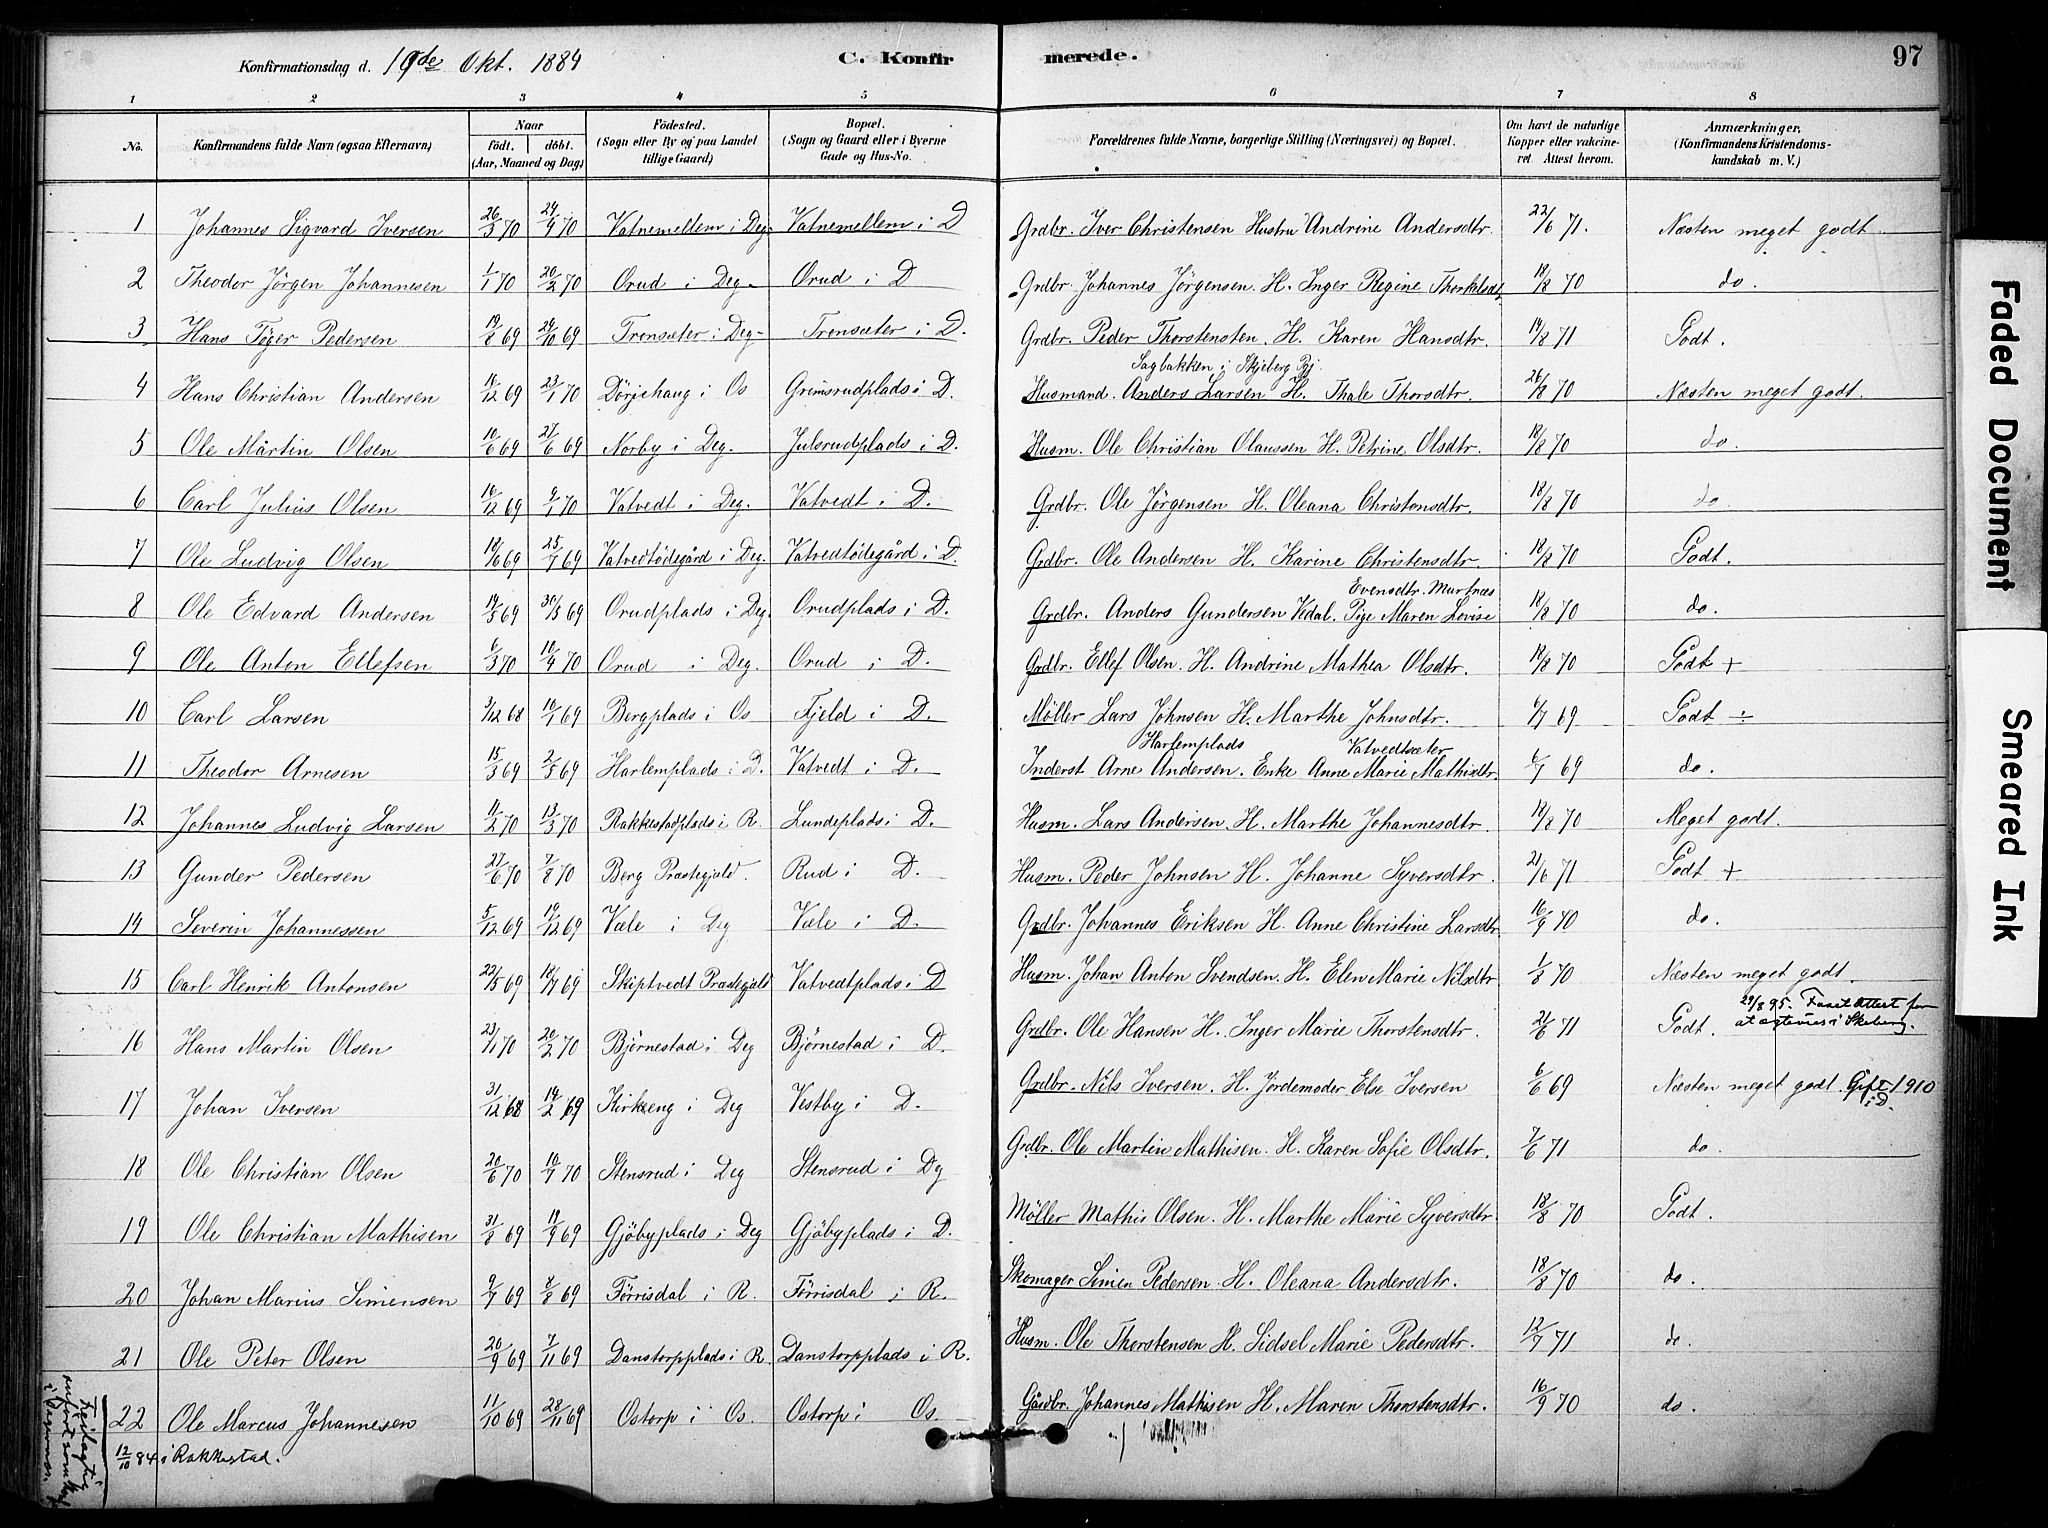 Konfirmationsdag d. 19de Okt. 1884 C. Konfir merede. 97
1 2 3 4 5 6 7 8
No. Konfirmandens fulde Navn (ogsaa Efternavn) Naar födt. döbt. (Aar, Maaned og Dag) Födested. (Sogn eller By og paa Landet tillige Gaard) Bopæl. (Sogn og Gaard eller i Byerne Gade og Hus-No. Forældrenes fulde Navne, borgerlige Stilling (Næringsvei) og Bopæl. Om havt de naturlige Kopper eller vakcineret. Attest herom. Anmærkninger. (Konfirmandens Kristendomskundskab m. V.)
1 Johannes Sigvard Iversen 26/3 70 24/4 70 Vatnemellem i Deg. Vatnemellem i D Grdbr. Iver Christensen Hustru Andrine Andersdtr. 22/6 71. Næsten meget godt.
2 Theodor Jörgen Johannesen 1/1 70 20/2 70 Orud i Deg. Orud i D Grdbr. Johannes Jörgensen. H. Inger Regine 18/8 70 do.
3 Hans Töger Pedersen 19/8 69 24/10 69 Trensæter i Deg. Trensæter i D. Grdbr. Peder Thorstensten. H. Karen Hansdtr. 19/8 71 Godt.
Sagbakken i Skjeberg Pgj.
4 Hans Christian Andersen 14/12 69 23/1 70 Dörjehaug i Os Grimsrudplads i D. Husmand. Anders Larsen H. Thale Thorsdtr. 26/8 70 Næsten meget godt.
5 Ole Martin Olsen 10/6 69 27/6 69 Norby i Deg. Julsrudplads i D. Husm. Ole Christian Olaussen H. Petrine Olsdtr. 18/8 70 do.
6 Carl Julius Olsen 16/12 69 9/1 70 Vatvedt i Deg. Vatvedt i D. Grdbr. Ole Jörgensen H. Oleana Christensdtr. 18/8 70 do
7 Ole Ludvig Olsen 18/6 69 25/7 69 Vatvedtödegård i Deg. Vatvedtödegård i D. Grdbr. Ole Andersen H. Karine Christensdtr. 18/8 70 Godt.
Evensdtr. Murtnes
8 Ole Edvard Andersen 14/5 69 30/5 69 Orudplads i Deg. Orudplads i D. Grdbr. Anders Gundersen Vedal. Pige Maren Lovise 18/8 70 do.
9 Ole Anton Ellefsen 6/3 70 10/4 70 Orud i Deg. Orud i D. Grdbr. Ellef Olsen. H. Andrine Mathea Olsdtr. 18/8 70 Godt +
10 Carl Larsen 3/12 68 10/1 69 Bergplads i Os Fjeld i D. Møller Lars Johnsen H. Marthe Johnsdtr. 6/7 69 Godt ÷
Harlemplads Vatvedtsæter
11 Theodor Arnesen 15/3 69 2/5 69 Harlemplads i D. Vatvedt i D. Inderst Arne Andersen. Enke Anne Marie Mathisdtr. 6/7 69 do.
12 Johannes Ludvig Larsen 11/2 70 13/3 70 Rakkestadplads i R. Lundeplads i D. Husm. Lars Andersen. H. Marthe Johannesdtr. 18/8 70 Meget godt.
13 Gunder Pedersen 27/6 70 7/8 70 Berg Præstegjeld. Rud i D. Husm. Peder Johnsen H. Johanne Syversdtr. 21/6 71 Godt +
14 Severin Johannessen 5/12 69 19/12 69 Væle i Deg Væle i D. Grdbr. Johannes Eriksen H. Anne Christine Larsdtr. 16/9 70 do.
15 Carl Henrik Antonsen 22/5 69 18/7 69 Skiptvedt Præstegjeld Vatvedtplads i D Husm. Johan Anton Svendsen. H. Elen Marie Nilsdtr 1/8 70 Næsten meget godt.
16 Hans Martin Olsen 23/1 70 20/2 70 Björnestad i Deg Björnestad i D. Grdbr. Ole Hansen H. Inger Marie Thorstensdtr. 21/6 71 Godt. 29/8 95. Faaet Attest for at ægtevies i Skeberg.
17 Johan Iversen 31/12 68 14/2 69 Kirkeng i Deg Vestby i D. Grdbr. Nils Iversen. H. Jordemoder Else Iversen 6/6 69 Næsten meget godt. Gift 1910 i D.
18 Ole Christian Olsen 20/6 70 10/7 70 Stensrud i Deg Stensrud i Dg Grdbr. Ole Martin Mathisen. H. Karen Sofie Olsdtr. 7/6 71 do.
19 Ole Christian Mathisen 31/8 69 19/9 69 Gjöbyplads i Deg Gjöbyplads i D. Möller Mathis Olsen. H. Marthe Marie Syversdtr. 18/8 70 Godt.
20 Johan Marius Simensen 9/7 69 8/8 69 Förrisdal i R. Förrisdal i R. Skomager Simen Pedersen. H. Oleana Andersdtr. 18/8 70 do.
21 Ole Peter Olsen 20/9 69 7/11 69 Danstorpplads i R. Danstorpplads i R. Husm. Ole Thorstensen H. Sidsel Marie Pedersdtr. 12/7 71 do.
22 Ole Marcus Johannesen 11/10 69 28/11 69 Ostorp i Os. Ostorp i Os. Gårdbr. Johannes Mathisen H. Maren Thorstensdtr. 16/9 70 do.
12/10 84 i Rakkestad.
Faded Document
Smeared Ink